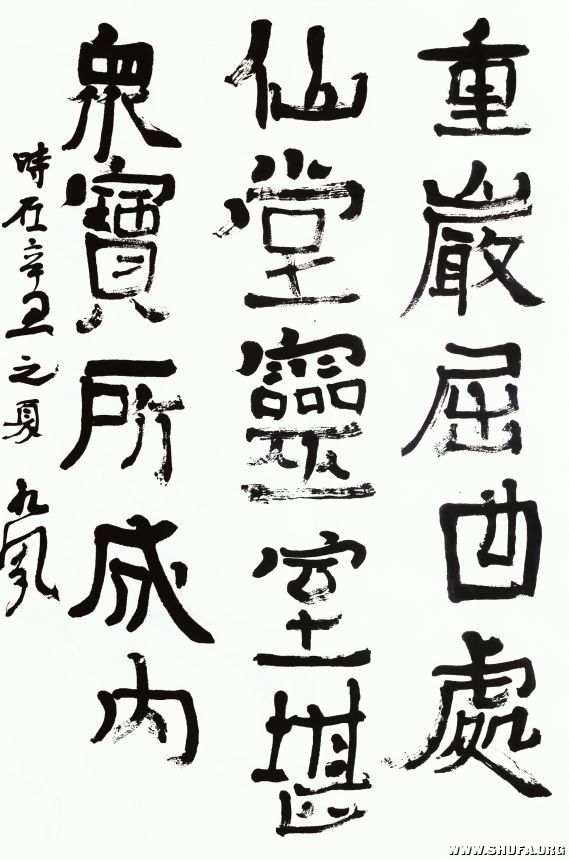 重巖屈曲處
仙堂靈室堪
眾寶所成內
時在辛丑之夏 九風
WWW.SHUFA.ORG